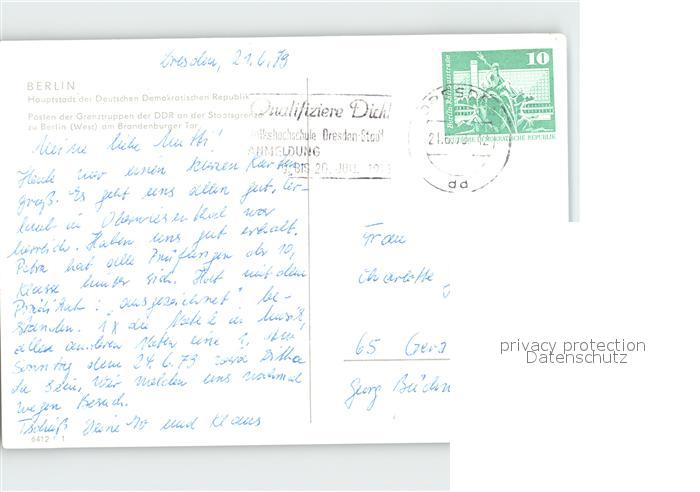 Dresden, 21.6.79
BERLIN
Hauptstadt der Deutschen Demokratischen Republik
Posten der Grenztruppen der DDR an der Staatsgrenze
zu Berlin (West) am Brandenburger Tor
Qualifiziere Dich!
Volkshochschule Dresden-Stadt
ANMELDUNG
BIS 20. JULI
DRESDEN
21.6.79
dd
10
Berlin-Rathausstraße
DEUTSCHE DEMOKRATISCHE REPUBLIK
Meine liebe Mutti!
Heute nur einen kleinen Karten
gruß. Es geht uns allen gut. Ur
laub in Oberwiesenthal war
herrlich. Haben uns gut erholt.
Petra hat alle Prüfungen der 10.
Klasse hinter sich. Hat mit dem
Prädikat: "ausgezeichnet" be-
standen. 1 x die Note in Musik,
alles anderen Noten eine 1. Am
Sonntag dem 24.6.79
zu sein. Wir melden uns nochmal
wegen Besuch.
Tschüß Deine und Klaus
6412
Frau
Charlotte
65 Gera
Georg Büchn
privacy protection
Datenschutz